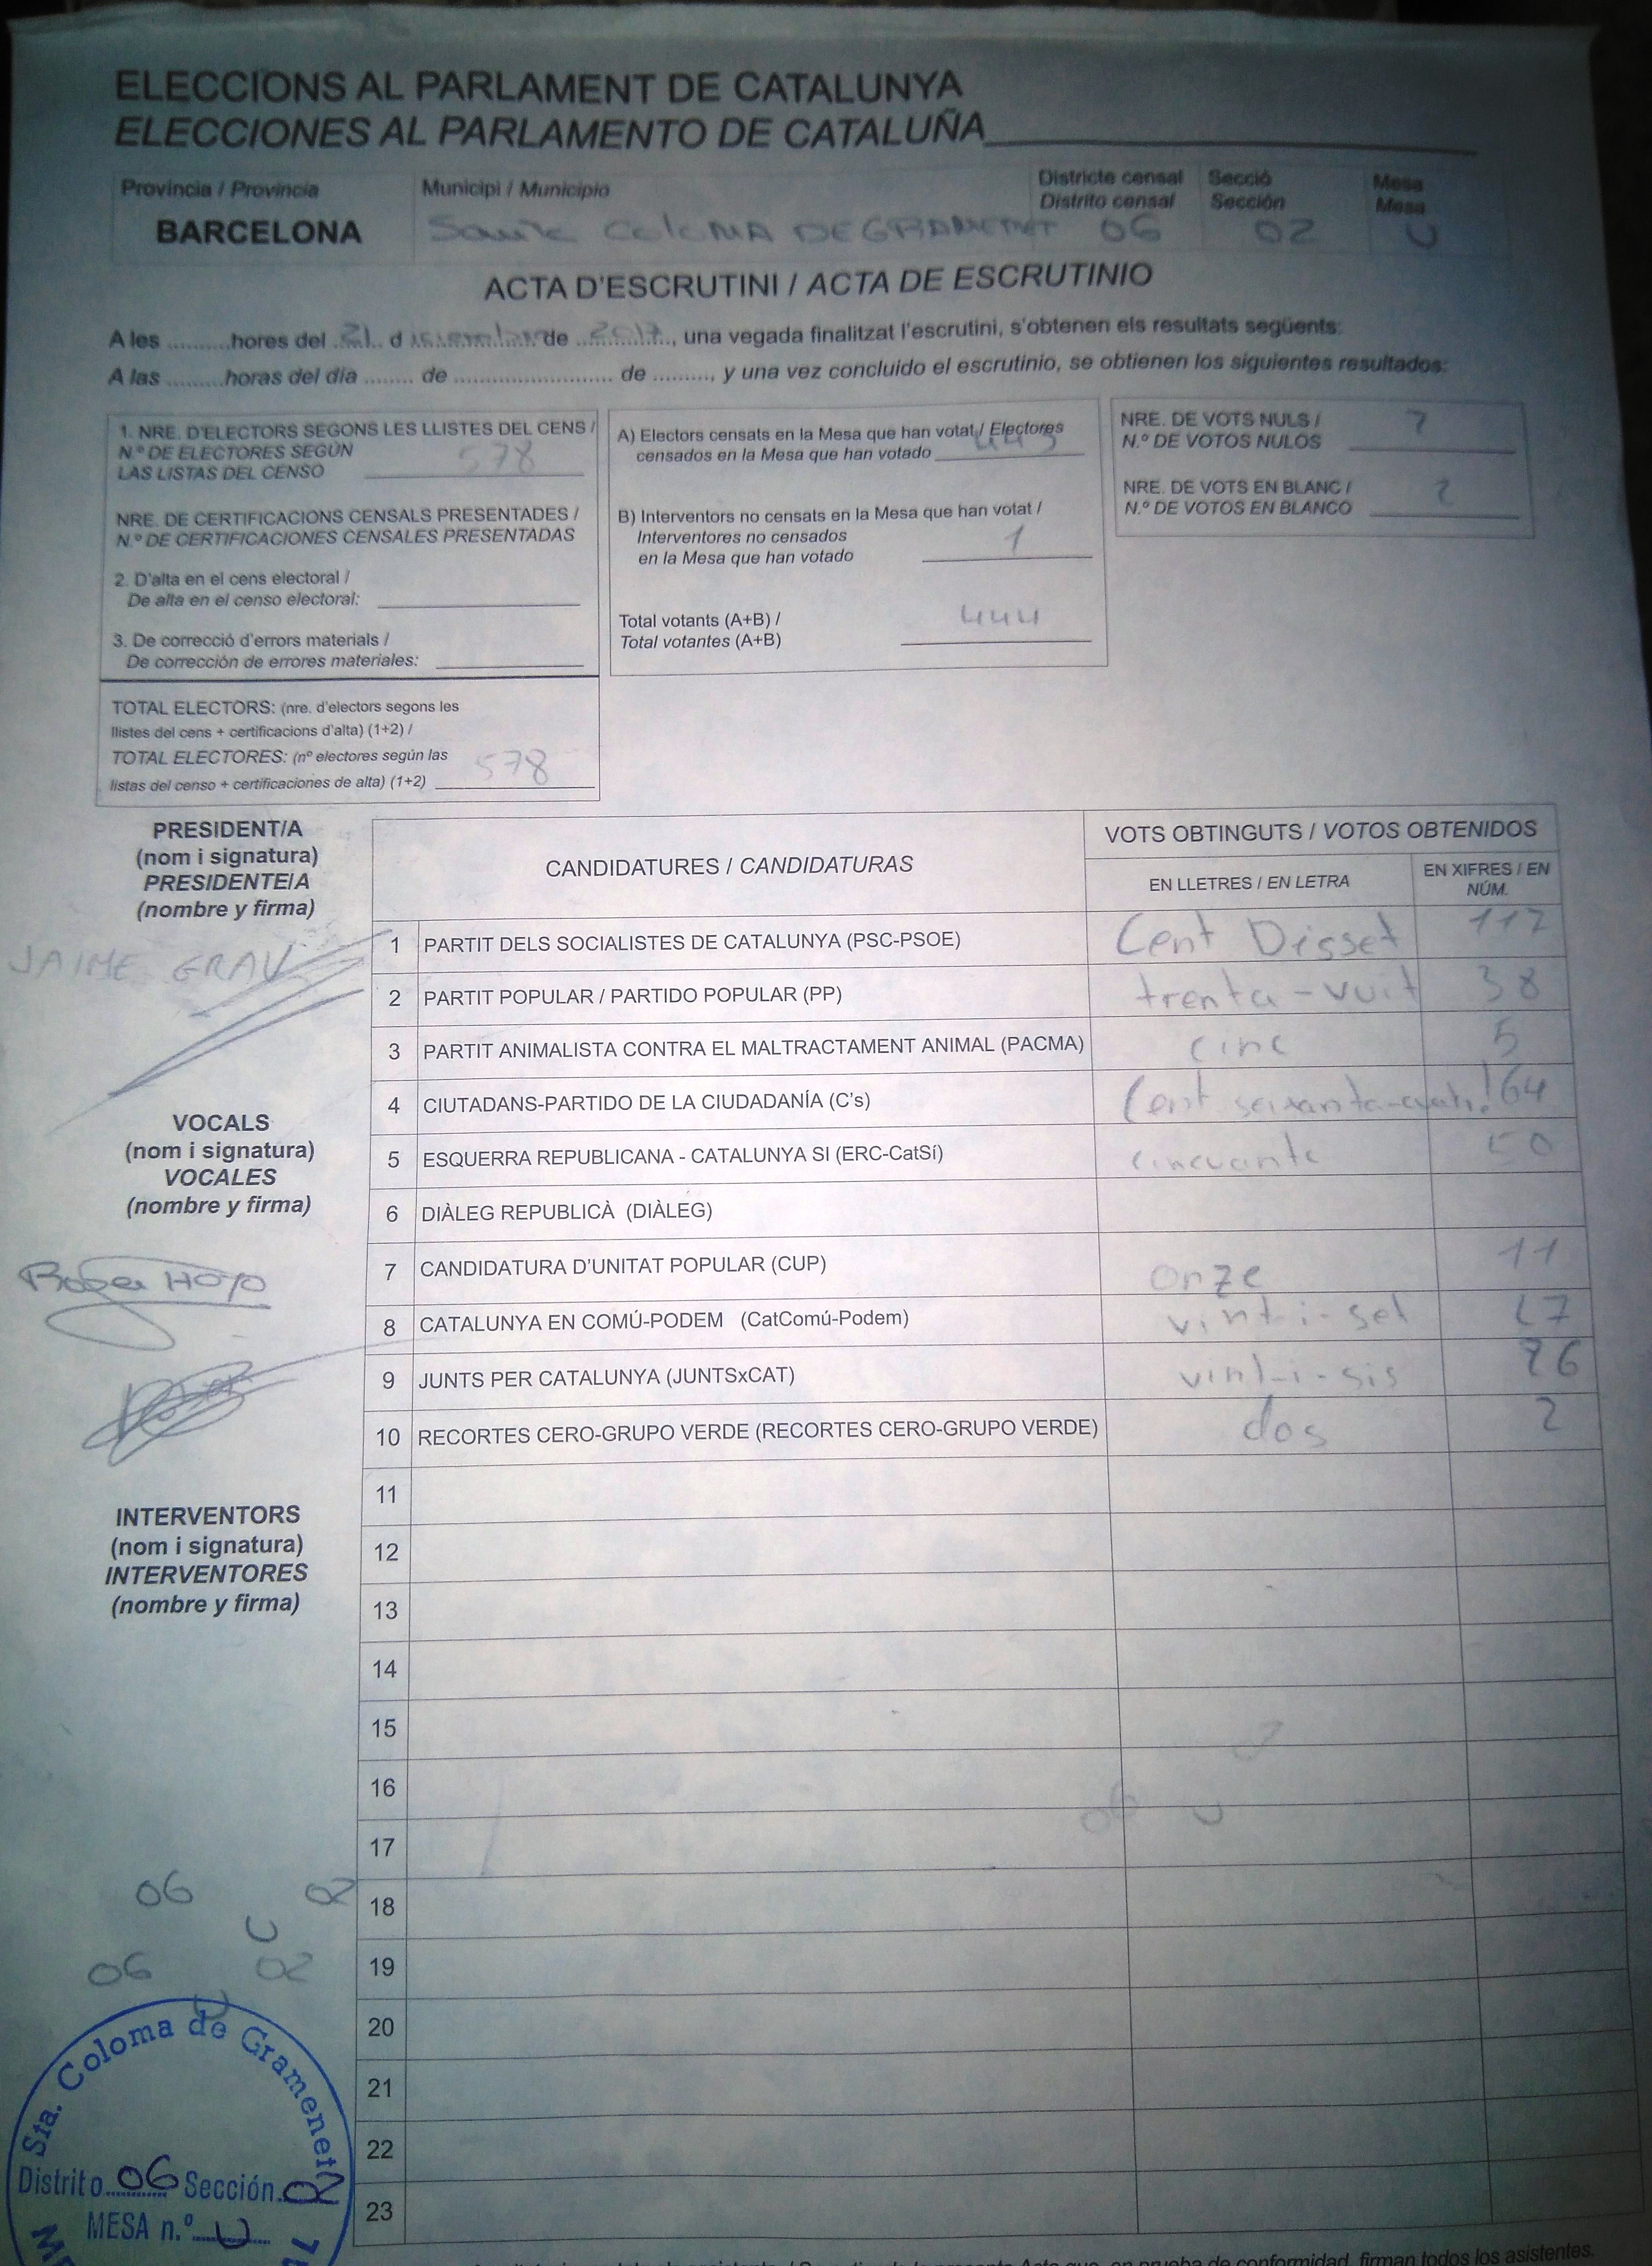 ELECCIONS AL PARLAMENT DE CATALUNYA
ELECCIONES AL PARLAMENTO DE CATALUÑA
Província / Provincia
Municipi / Municipio
Districte censal
Distrito censal
Secció
Sección
Mesa
Mesa
BARCELONA
COLOMA DE GRAMENET 06 02 U
ACTA D'ESCRUTINI / ACTA DE ESCRUTINIO
A les .........hores del 21 d de 2017, una vegada finalitzat l'escrutini, s'obtenen els resultats següents:
A las ........horas del día ........ de .......................... de ........., y una vez concluido el escrutinio, se obtienen los siguientes resultados:
1. NRE. D'ELECTORS SEGONS LES LLISTES DEL CENS /
N.º DE ELECTORES SEGÚN
LAS LISTAS DEL CENSO 578
NRE. DE CERTIFICACIONS CENSALS PRESENTADES /
N.º DE CERTIFICACIONES CENSALES PRESENTADAS
2. D'alta en el cens electoral /
De alta en el censo electoral:
3. De correcció d'errors materials /
De corrección de errores materiales:
TOTAL ELECTORS: (nre. d'electors segons les
llistes del cens + certificacions d'alta) (1+2) /
TOTAL ELECTORES: (nº electores según las
listas del censo + certificaciones de alta) (1+2) 578
A) Electors censats en la Mesa que han votat / Electores
censados en la Mesa que han votado 443
B) Interventors no censats en la Mesa que han votat /
Interventores no censados
en la Mesa que han votado 1
Total votants (A+B) /
Total votantes (A+B) 444
NRE. DE VOTS NULS /
N.º DE VOTOS NULOS
NRE. DE VOTS EN BLANC /
N.º DE VOTOS EN BLANCO 2
PRESIDENT/A
(nom i signatura)
PRESIDENTE/A
(nombre y firma)
JAIME GRAU
VOCALS
(nom i signatura)
VOCALES
(nombre y firma)
Roger HOYO
INTERVENTORS
(nom i signatura)
INTERVENTORES
(nombre y firma)
CANDIDATURES / CANDIDATURAS
VOTS OBTINGUTS / VOTOS OBTENIDOS
EN LLETRES / EN LETRA
EN XIFRES / EN
NÚM.
1 PARTIT DELS SOCIALISTES DE CATALUNYA (PSC-PSOE) Cent Disset 117
2 PARTIT POPULAR / PARTIDO POPULAR (PP) trenta-vuit 38
3 PARTIT ANIMALISTA CONTRA EL MALTRACTAMENT ANIMAL (PACMA) cinc 5
4 CIUTADANS-PARTIDO DE LA CIUDADANÍA (C's) Cent 164
5 ESQUERRA REPUBLICANA - CATALUNYA SI (ERC-CatSí) 50
6 DIÀLEG REPUBLICÀ (DIÀLEG)
7 CANDIDATURA D'UNITAT POPULAR (CUP) onze 11
8 CATALUNYA EN COMÚ-PODEM (CatComú-Podem) vint-i-set 27
9 JUNTS PER CATALUNYA (JUNTSxCAT) vint-i-sis 26
10 RECORTES CERO-GRUPO VERDE (RECORTES CERO-GRUPO VERDE) dos 2
11
12
13
14
15
16
17
18
19
20
21
22
23
06 U
06 02
U
06 02
U
Sta. Coloma de Gramenet
Distrito 06 Sección 02
MESA n.º U
firman todos los asistentes.